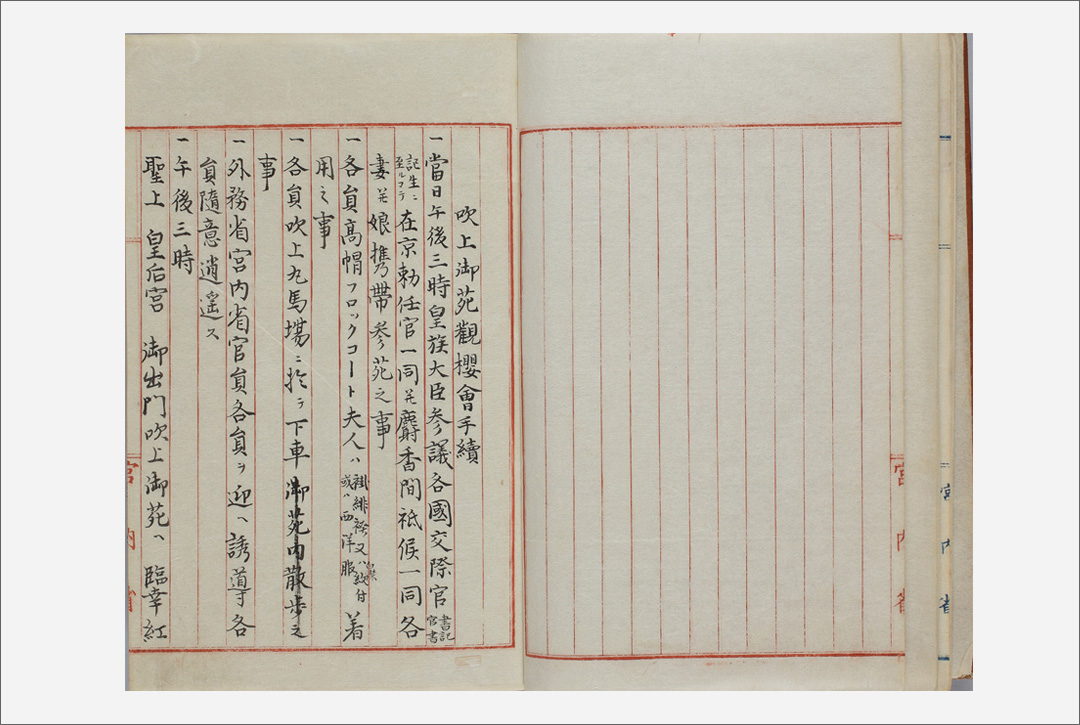 吹上御苑觀櫻會手續
一當日午後三時皇族大臣参議各國交際官書記官書
記生ニ至ルマテ在京勅任官一同并麝香間祗候一同各
妻并娘携帶参苑之事
一各員高帽フロックコート夫人ハ袿緋袴又ハ白襟紋付或ハ西洋服着
用之事
一各員吹上丸馬場ニ於テ下車御苑内散歩之
事
一外務省宮内省官員各員ヲ迎ヘ誘導各
員隨意逍遥ス
一午後三時
聖上 皇后宮 御出門吹上御苑ヘ臨幸紅
宮内省
宮内省
宮内省